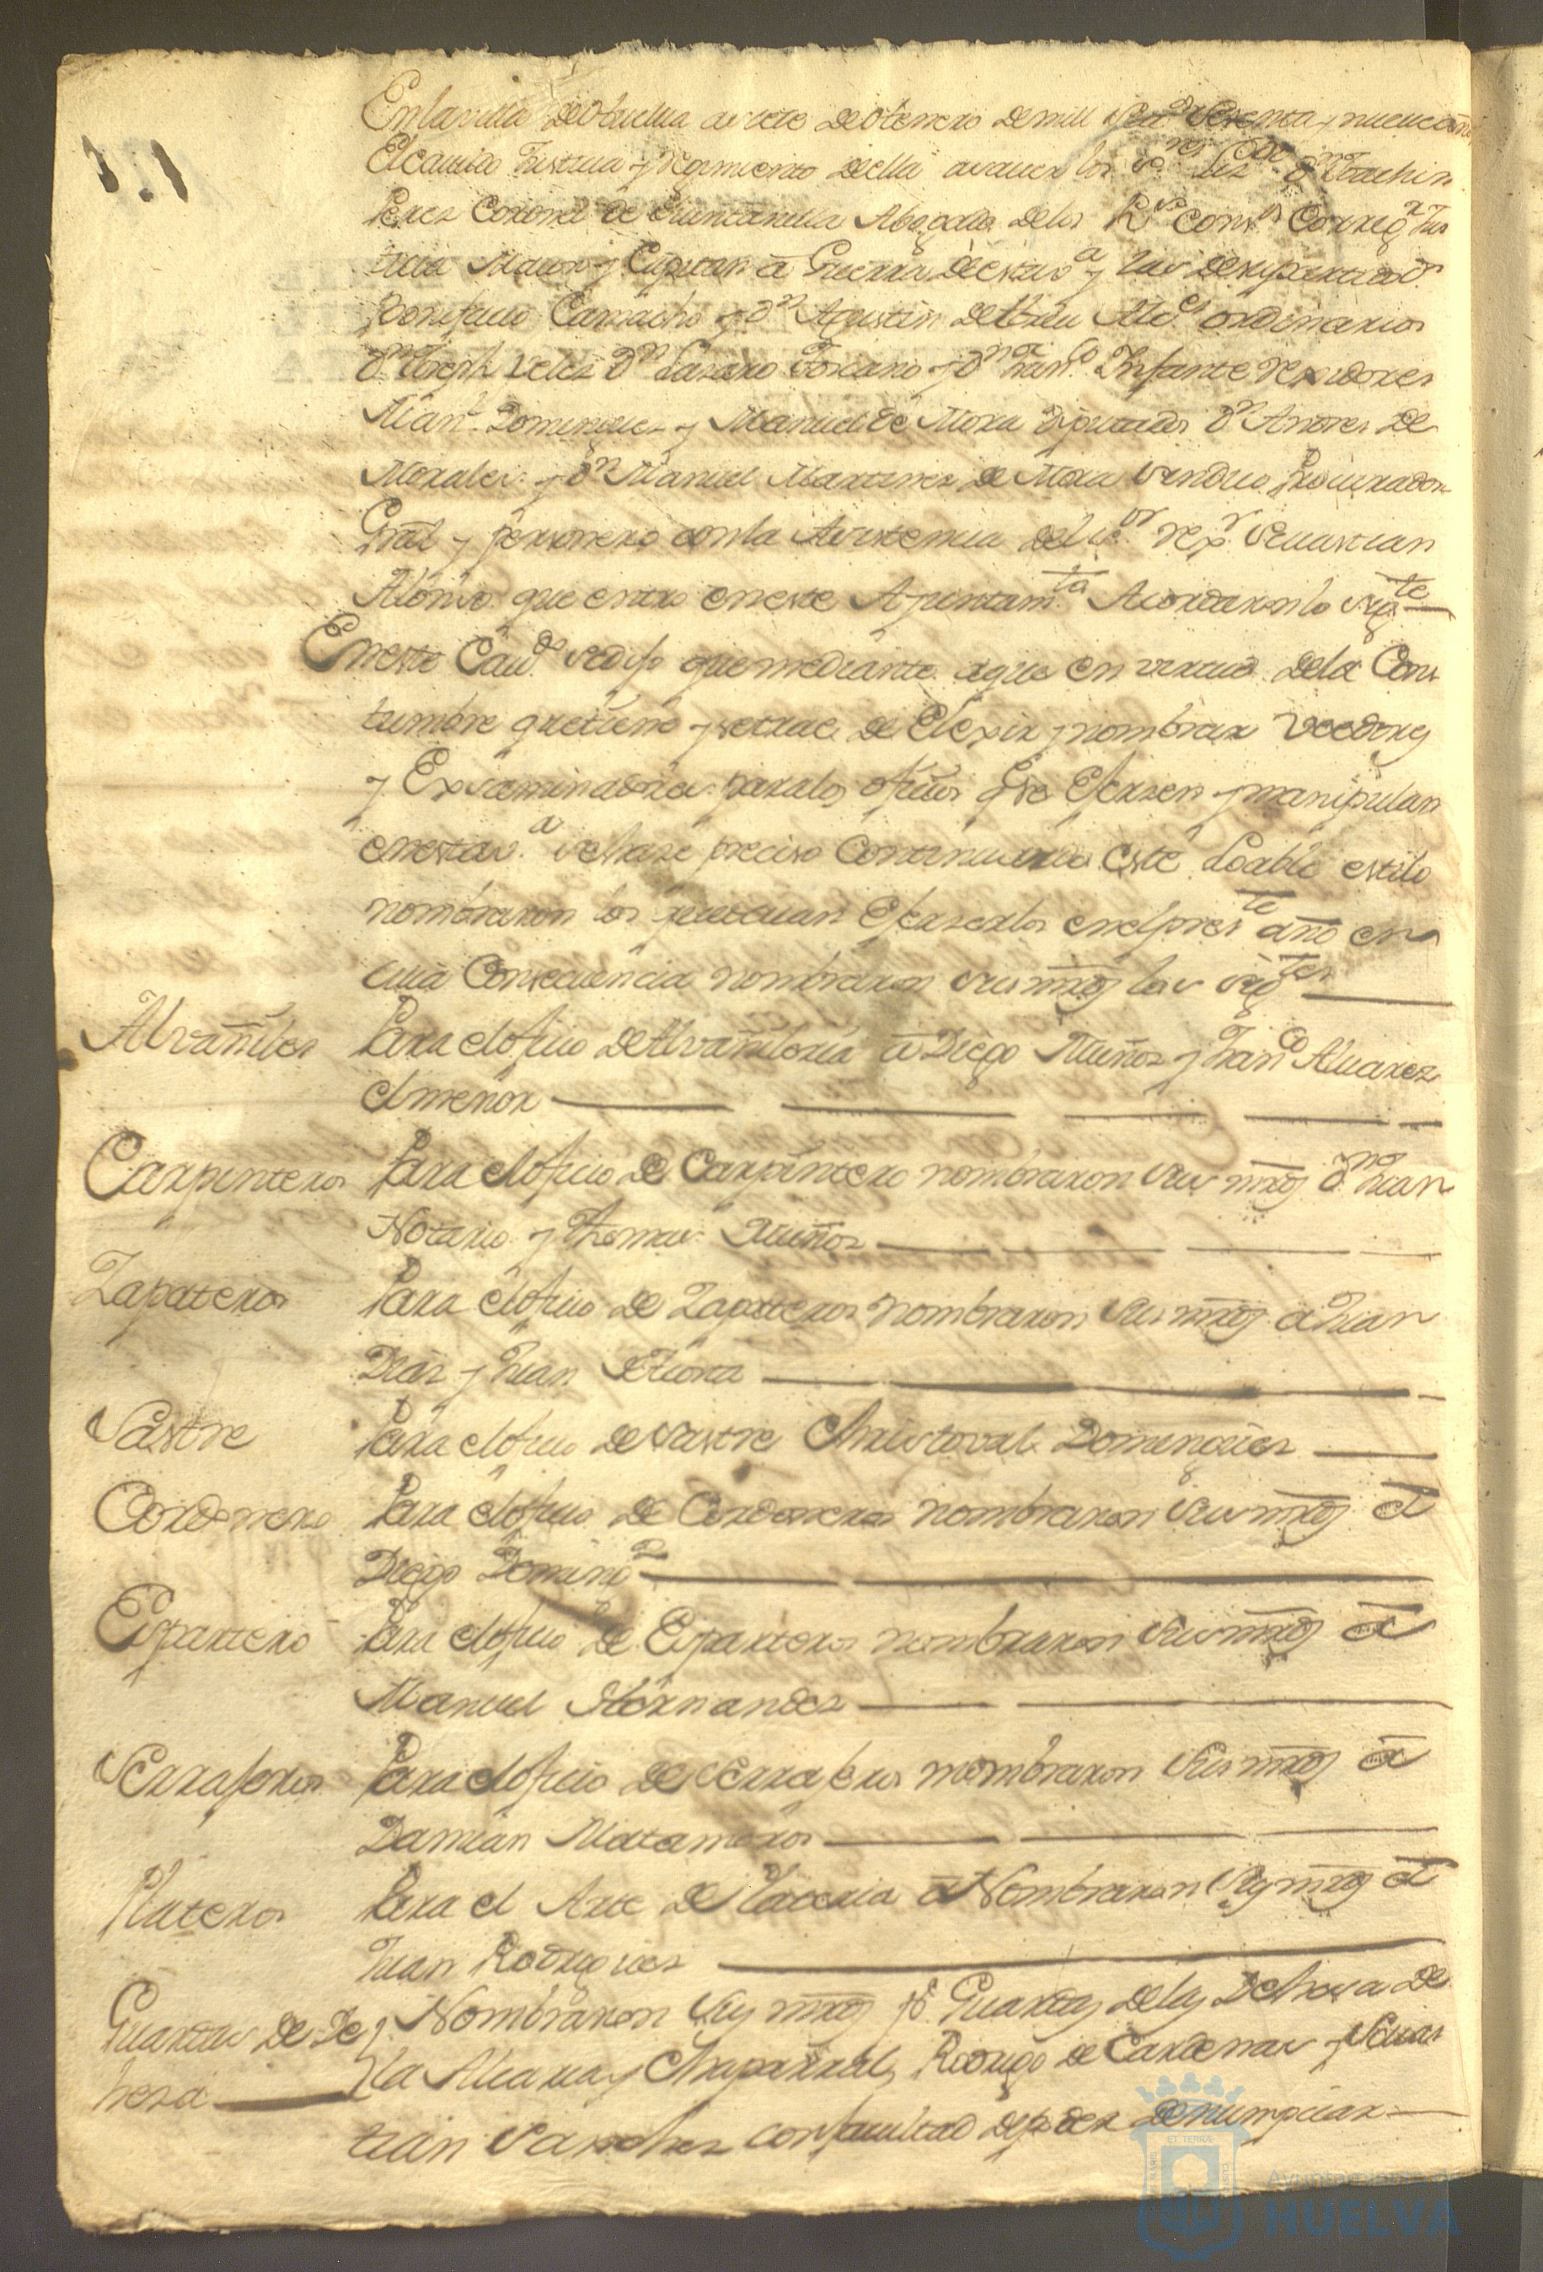 En la villa de Huelva a siete de Henero de mill set.os Sesenta y nueve años
El Cavildo Justicia y reximiento de ella a saver los S.res Liz.do D.n Joachin
Perez Coronel de Quintanilla Abogado de los R.s Cons.os Correg.r Jus
ticia Maior y Capitan â Guerra de esta v.a y las de su partido D.n
Bonifacio Camacho y D.n Agustin de Abreu Alc.es ordinarios
D.n Joseph Velez D.n Lazaro Toscano y D.n Fran.co Infante rexidores
Man.l Dominguez y Manuel de Mora Diputados D.n Andres de
Morales y D.n Manuel Martinez de Mora Sindico Procurador
Gral y personero con la Asistencia del S.or rex.r Sevastian
Alonso que entro en este Ayuntam.to Acordaron lo sig.te
En este Cav.do se dijo que mediante a que en virtud de la Cons
tumbre que tiene y se trae de Elexir y nombrar Veedores
y Examinadores para los oficios q.e se Ejersen y manipulan
en esta v.a se hase preciso Continuando este Loable estilo
nombraron los que devan Ejerserlos en el pres.te año en
cuia Consecuencia nombraron sus mrds los sig.tes
Alvañiles Para el ofizio de Alvañileria â Diego Muñoz y Fran.co Alvarez
el menor
Carpinteros Para el ofizio de Carpintero nombraron sus mrds Juan
Notario y Thomas Muñoz
Zapateros Para el ofizio de Zapateros nombraron sus mrds a Juan
Diaz y Juan de
Sastre Para el ofizio de sastre Christoval Dominguez
Cordonero Para el ofizio de Cordoneros nombraron sus mrds â
Diego Doming.z
Espartero Para el ofizio de Esparteros nombraron sus mrds â
Manuel Hernandez
Serrajeros Para el ofizio de Serrajeros nombraron sus mrds â
Damian Matamoros
Plateros Para el Arte de Plateria â Nombraron sus mrds â
Juan Rodriguez
Guardas de De Nombraron sus mrds p.r Guardas de las Dehesa de
hesa la Alcaria y Chaparral, Rodrigo de Cardenas y Sevas
tian Sanchez con facultad de poder denumpciar
ET TERRÆ
Ayuntamiento de
HUELVA